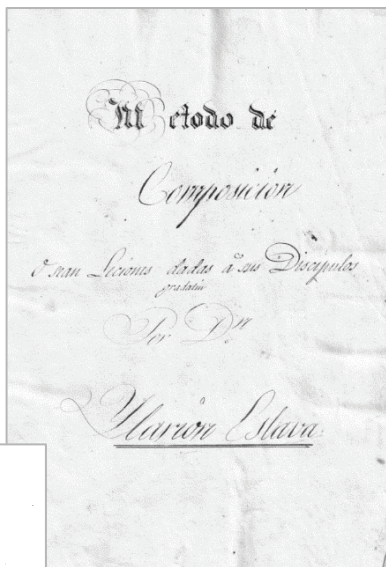 Metodo de
Composición
O sean Leciones dadas á sus Discipulos
gradatin
Por Dn
Ylarion Eslava